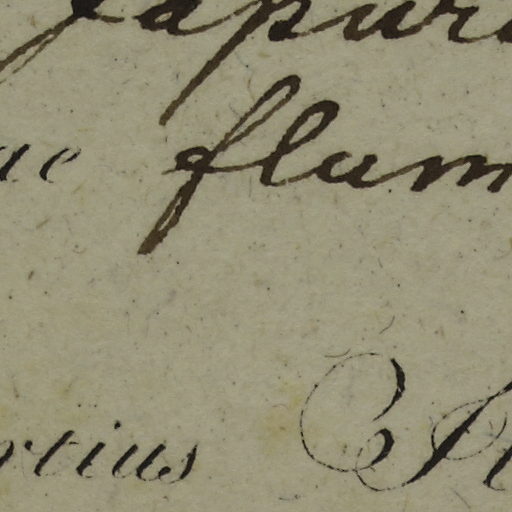 Japur
ae flum
rtius